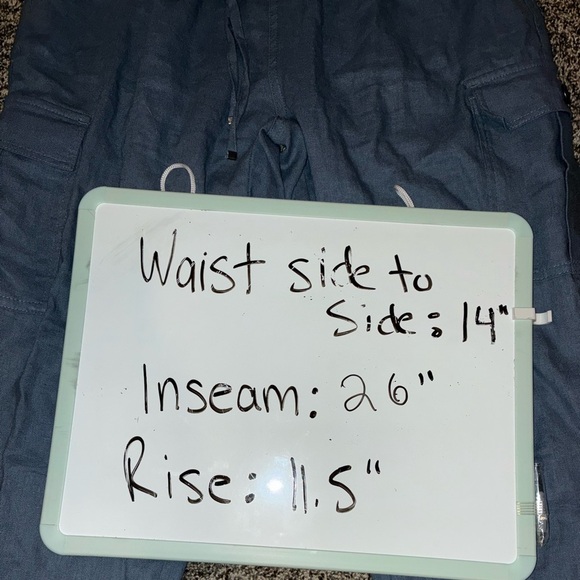 Waist side to
Side: 14"
Inseam: 26"
Rise: 11.5"